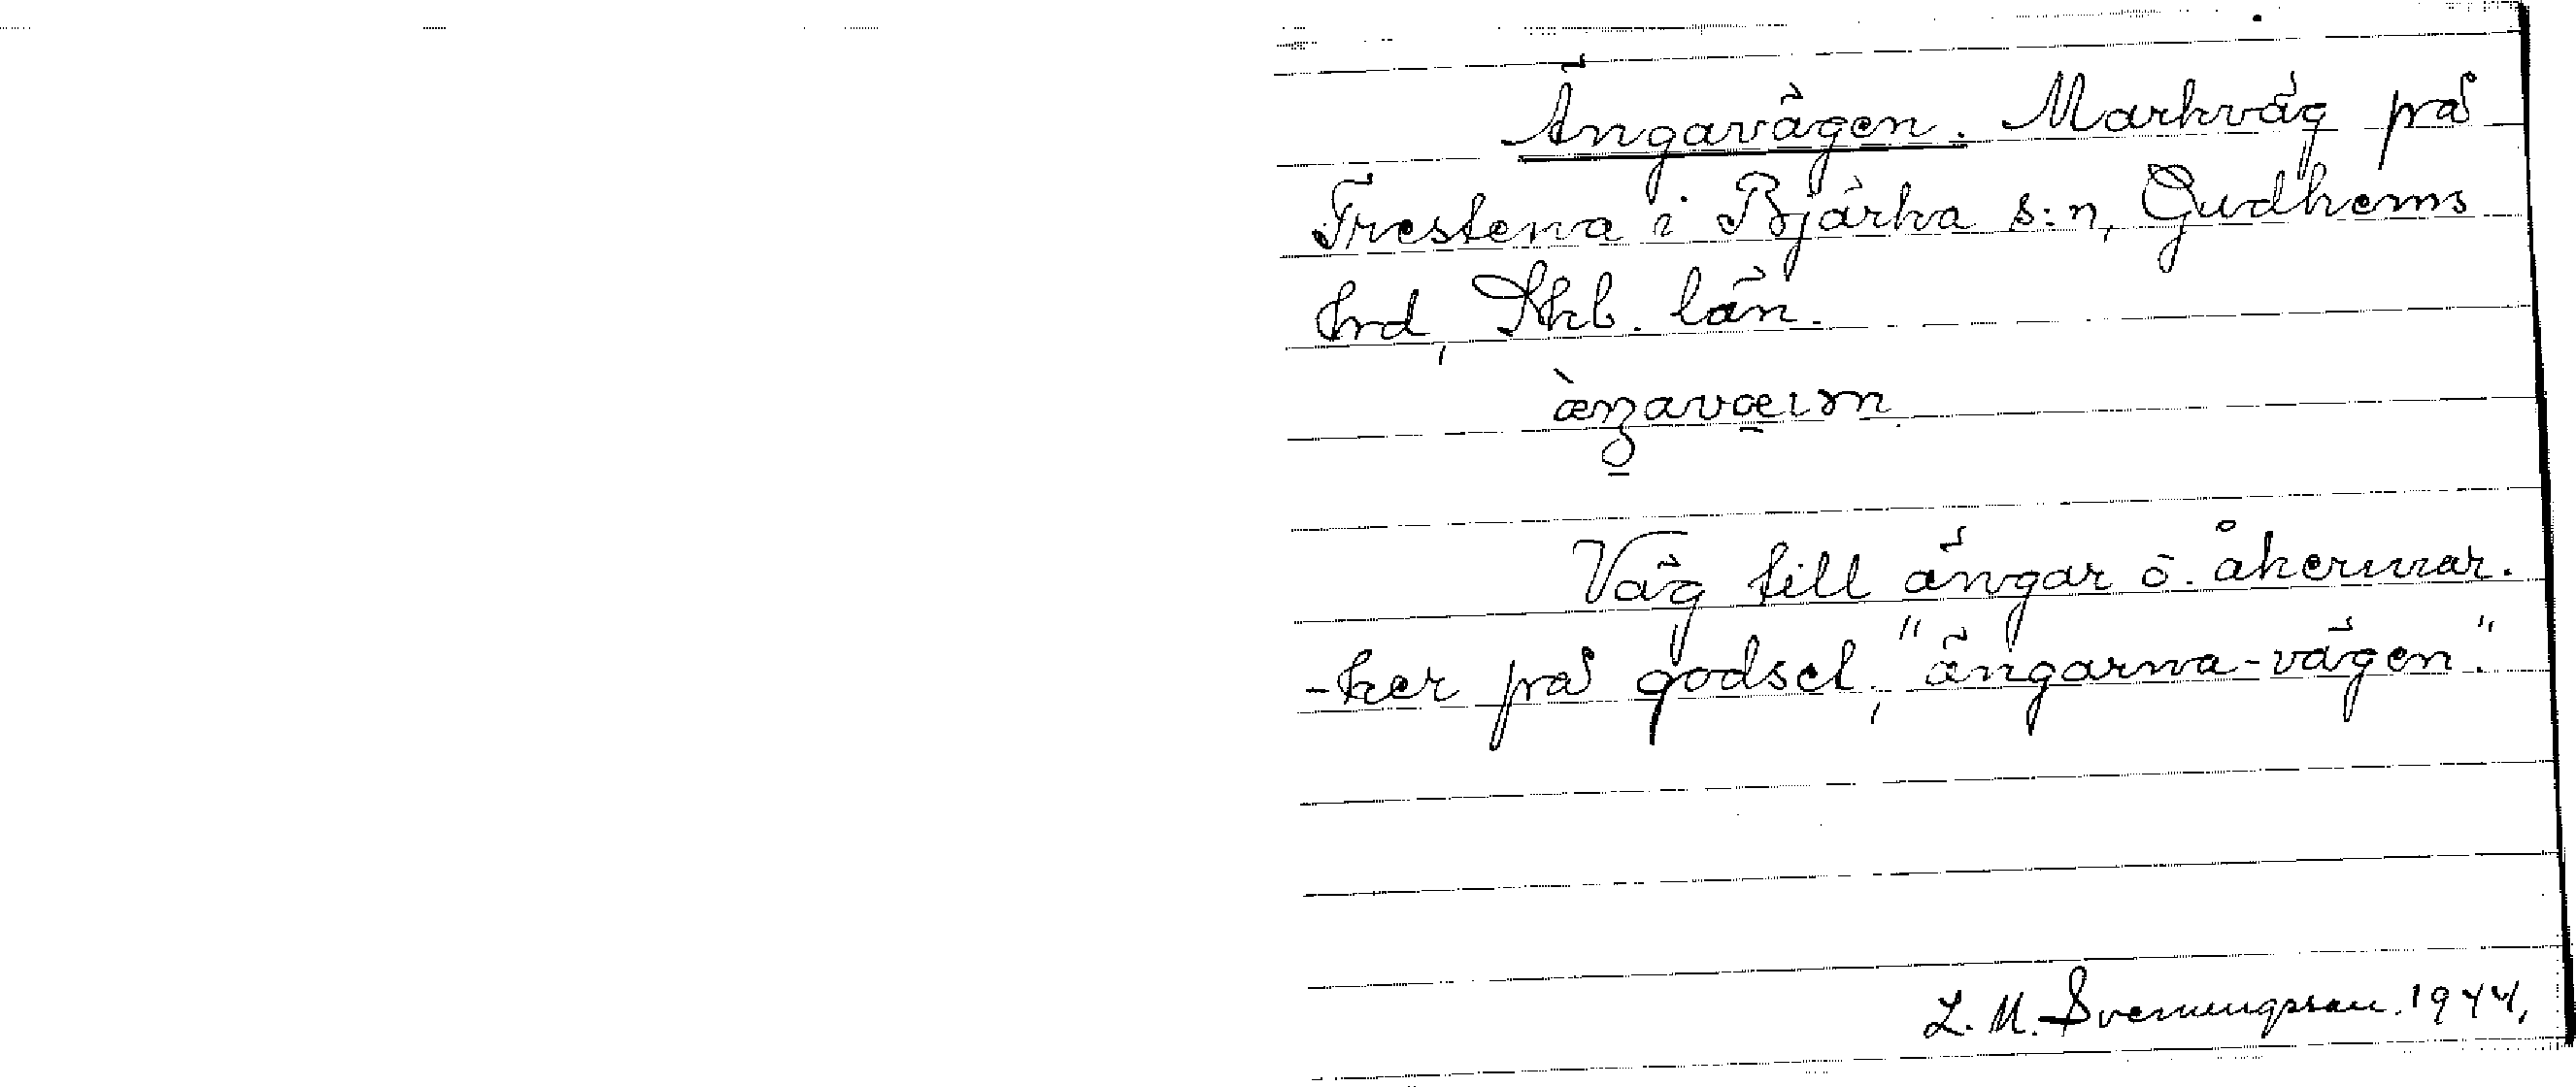 Ängavägen. Markväg på
Trestena i Bjärka s:n, Gudhems
hrd, Skb. län.
æ̀ŋavæɪən
Väg till ängar o. åkermar-
-ker på godset, "ängarna-vägen".
L. M. Svenungsson. 1944.